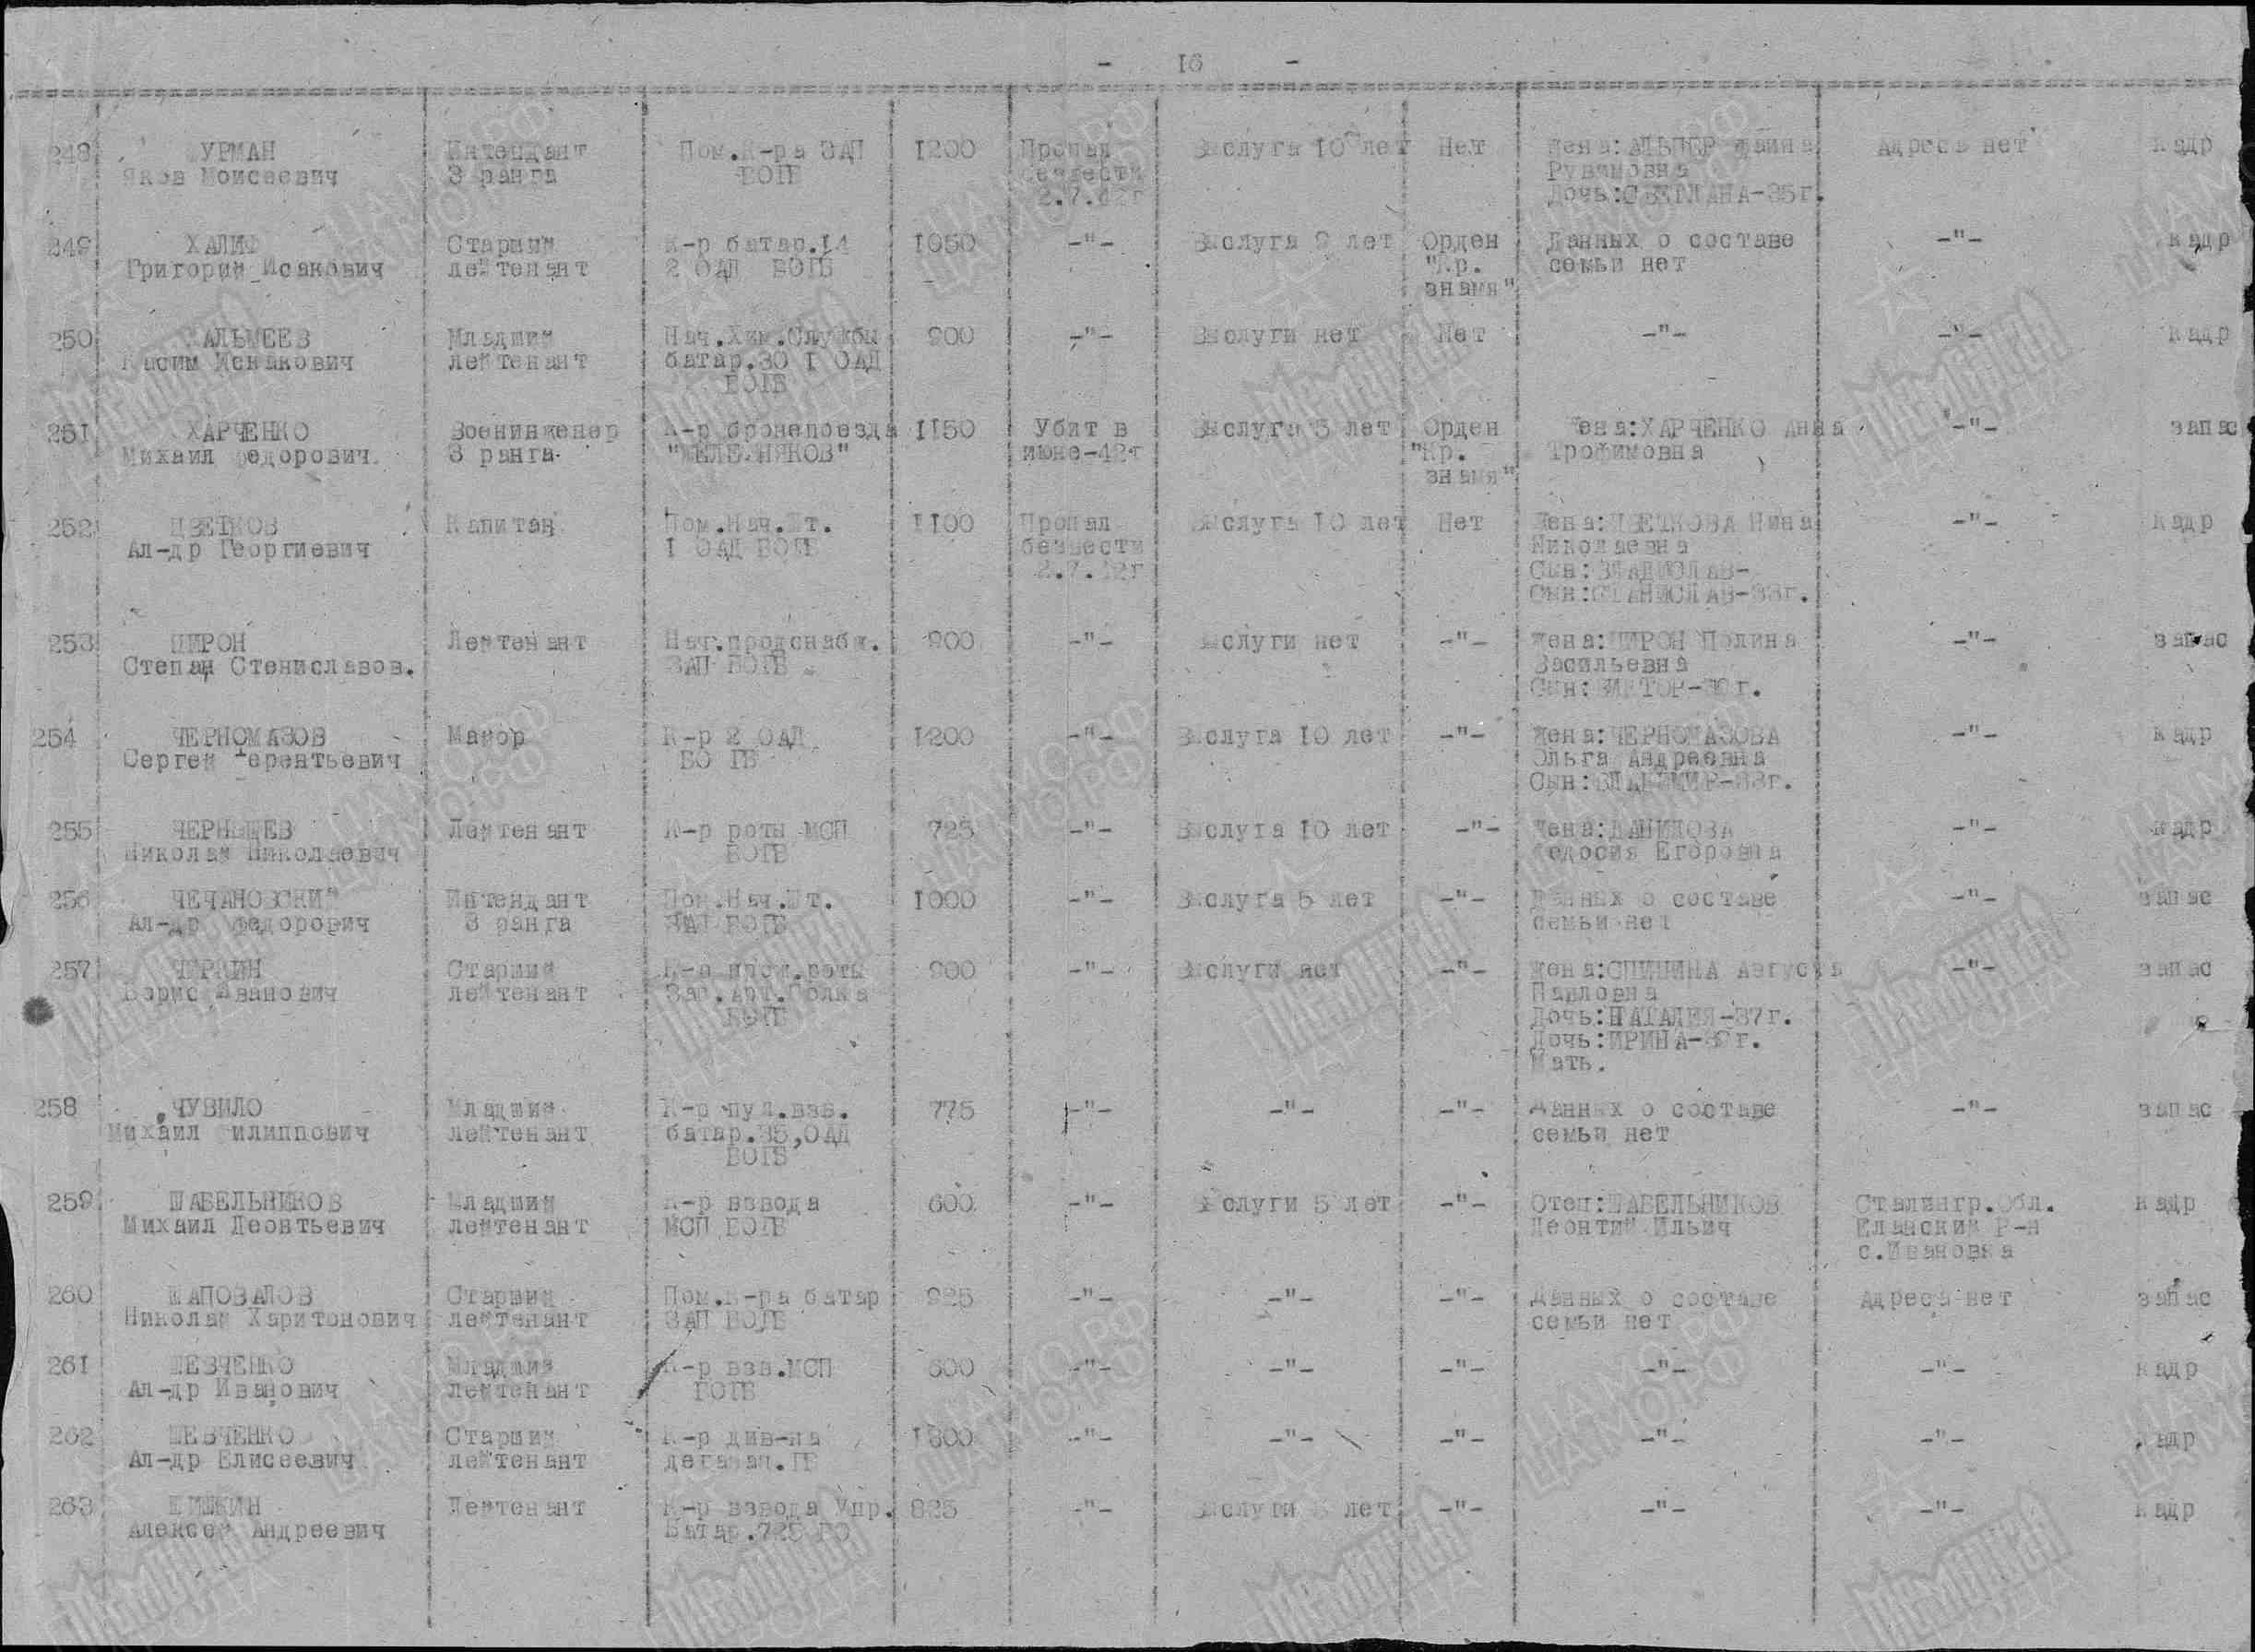 - 16 -
248 УРМАН Интендант Пом.К-ра ЗАП 1200 Пропал Выслуга 10 лет Нет Жена:АЛЬПЕР Фаина Адреса нет кадр
Яков Моисеевич 3 ранга БОГБ безвести Рувимовна
2.7.42г Дочь:СВЕТЛАНА-35г.
249 ХАЛИФ Старший К-р батар.14 1050 -"- Выслуга 9 лет Орден Данных о составе -"- кадр
Григорий Исакович лейтенант 2 ОАД БОГБ "Кр. семьи нет
знамя"
250 Младший Нач.Хим.Службы 900 -"- Выслуги нет Нет -"- -"- кадр
Касим Исхакович лейтенант батар.30 1 ОАД
БОГБ
251 ХАРЧЕНКО Военинженер К-р бронепоезда 1150 Убит в Выслуга 5 лет Орден Жена:ХАРЧЕНКО Анна -"- запас
Михаил Федорович 3 ранга "ЖЕЛЕЗНЯКОВ" июне-42г "Кр. Трофимовна
знамя"
252 ЦВЕТКОВ Капитан Пом.Нач.Шт. 1100 Пропал Выслуга 10 лет Нет Жена:ЦВЕТКОВА Нина -"- кадр
Ал-др Георгиевич 1 ОАД БОГБ безвести Николаевна
2.7.42г Сын:ВЛАДИСЛАВ-
Сын:СТАНИСЛАВ-33г.
253 ЦИРОН Лейтенант Нач.продснабж. 900 -"- Выслуги нет -"- Жена:ЦИРОН Полина -"- запас
Степан Стениславов. ЗАП БОГБ Васильевна
Сын:ВИКТОР-
254 ЧЕРНОМАЗОВ Майор К-р 2 ОАД 1200 -"- Выслуга 10 лет -"- Жена:ЧЕРНОМАЗОВА -"- кадр
Сергей Терентьевич БО ГБ Ольга Андреевна
Сын:ВЛАДИМИР-33г.
255 ЧЕРНЫШЕВ Лейтенант К-р роты МСП 725 -"- Выслуга 10 лет -"- Жена:ДАНИЛОВА -"- кадр
Николай Николаевич БОГБ Федосия Егоровна
256 ЧЕЧАНОВСКИЙ Интендант Пом.Нач.Шт. 1000 -"- Выслуга 5 лет -"- Данных о составе -"- запас
Ал-др Федорович 3 ранга ЗАП БОГБ семьи нет
257 ЧЕРКИН Старший К-р прож.роты 900 -"- Выслуги нет -"- Жена:СПИЦИНА Августа -"- запас
Борис Иванович лейтенант Зап.Арт.Полка Павловна
БОГБ Дочь:НАТАЛЕЯ-37г.
Дочь:ИРИНА-
Мать.
258 ЧУВИЛО Младший К-р пул.взв. 775 -"- -"- -"- Данных о составе -"- запас
Михаил Филиппович лейтенант батар.35,ОАД семьи нет
БОГБ
259 ШАБЕЛЬНИКОВ Младший К-р взвода 600 -"- Выслуги 5 лет -"- Отец:ШАБЕЛЬНИКОВ Сталингр.Обл. кадр
Михаил Леонтьевич лейтенант МСП БОГБ Леонтий Ильич Еланский Р-н
с.Ивановка
260 ШАПОВАЛОВ Старший Пом.К-ра батар 925 -"- -"- -"- Данных о составе Адреса нет запас
Николай Харитонович лейтенант ЗАП БОГБ семьи нет
261 ШЕВЧЕНКО Младший К-р взв.МСП 600 -"- -"- -"- -"- -"- кадр
Ал-др Иванович лейтенант БОГБ
262 ШЕВЧЕНКО Старший К-р див-на 1300 -"- -"- -"- -"- -"- кадр
Ал-др Елисеевич лейтенант дегазац.ГБ
263 ШИШКИН Лейтенант К-р взвода Упр. 825 -"- Выслуги 5 лет -"- -"- -"- кадр
Алексей Андреевич Батар.725 БО